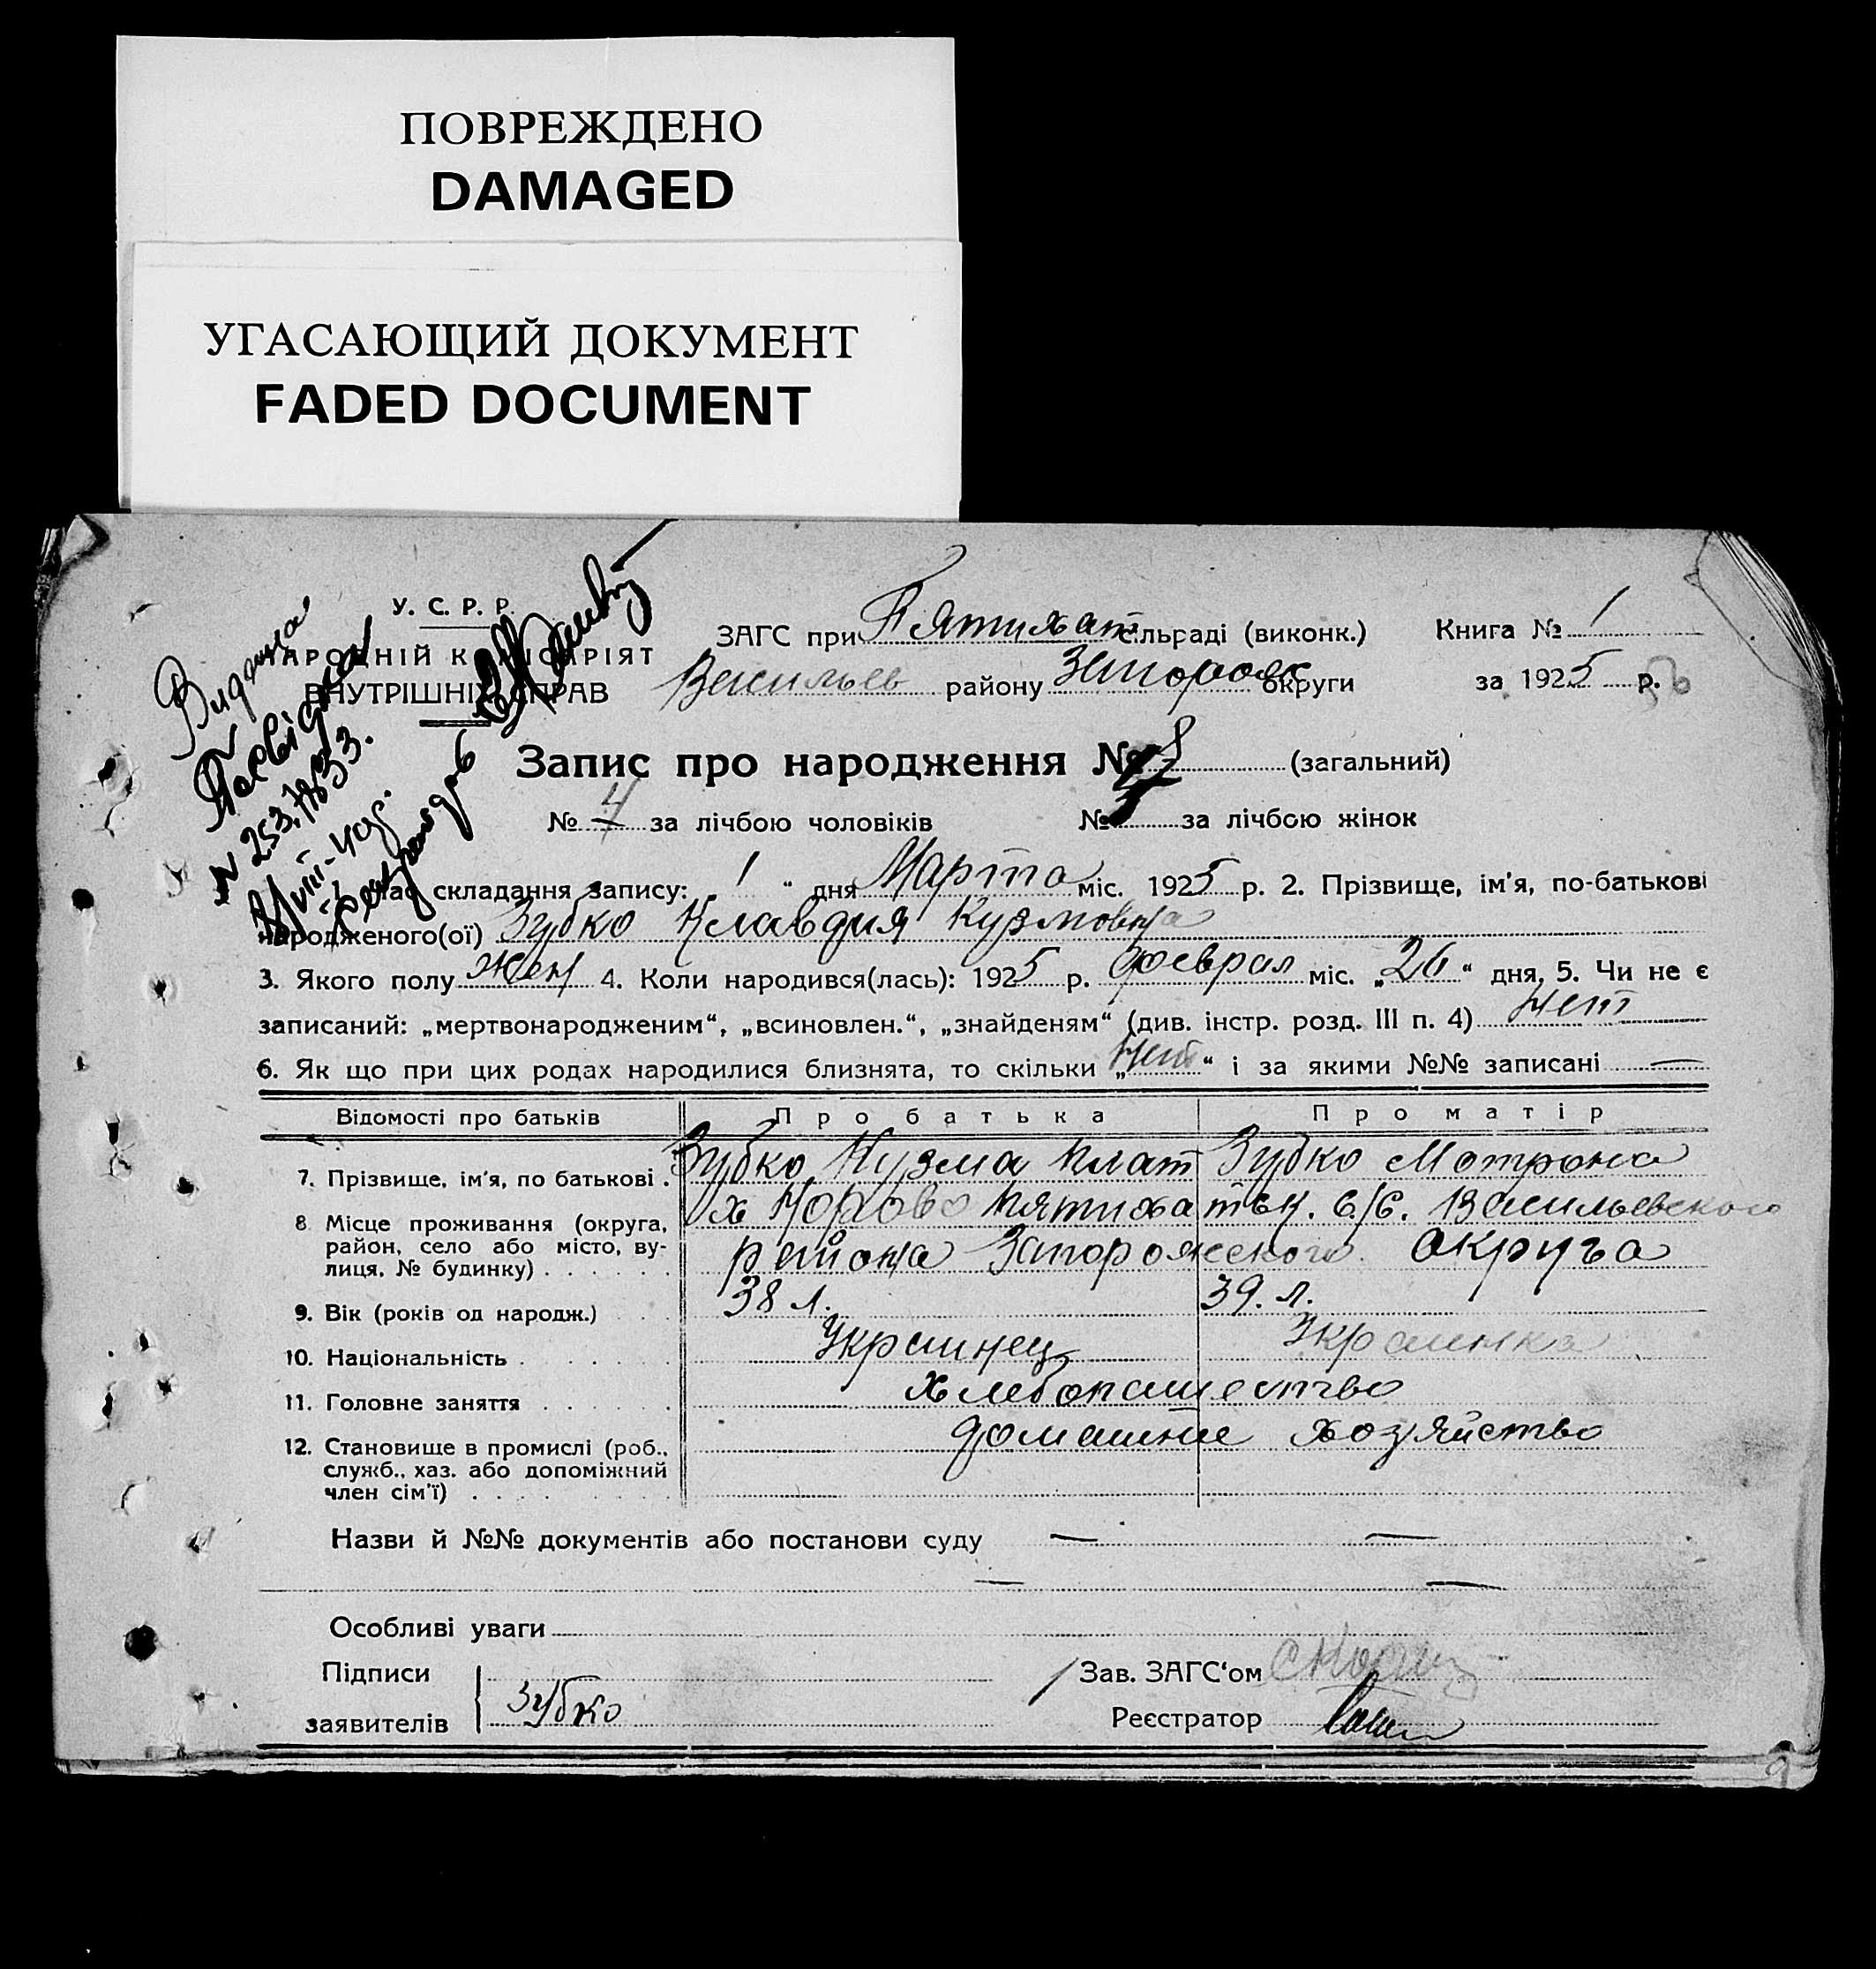 ПОВРЕЖДЕНО
DAMAGED
УГАСАЮЩИЙ ДОКУМЕНТ
FADED DOCUMENT
У. С. Р. Р.
НАРОДНІЙ КОМІСАРІЯТ
ВНУТРІШНІХ СПРАВ
Видана
ЗАГС при Пятихат сільраді (виконк.) Книга № 1
Васильев району Запорожс округи за 1925 р.
Запис про народження № 8 (загальний)
№ 4 за лічбою чоловіків № за лічбою жінок
Час складання запису: 1 " дня Марта міс. 1925 р. 2. Прізвище, ім'я, по-батькові
народженого(ої) Зубко Клавдия Кузмовна
3. Якого полу жен 4. Коли народився(лась): 1925 р. феврал міс. „26“ дня, 5. Чи не є
записаний: „мертвонародженим“, „всиновлен.“, „знайденям“ (див. інстр. розд. III п. 4) нет
6. Як що при цих родах народилися близнята, то скільки „нет“ і за якими №№ записані —
Відомості про батьків Про батька Про матір
7. Прізвище, ім'я, по батькові . Зубко Кузма Плат Зубко Мотрона
8 Місце проживання (округа, район, село або місто, вулиця, № будинку) х Пятихатск. с/с. Васильевского
района Запорожского округа
9. Вік (років од народж.) 38 л. 39. л.
10. Національність Украинец Украинка
11. Головне заняття Хлебопашество
12. Становище в промислі (роб., служб., хаз. або допоміжний член сім'ї) домашне хозяйство
Назви й №№ документів або постанови суду — —
— —
Особливі уваги
Підписи Зав. ЗАГС‘ом
заявителів Зубко Реєстратор
9